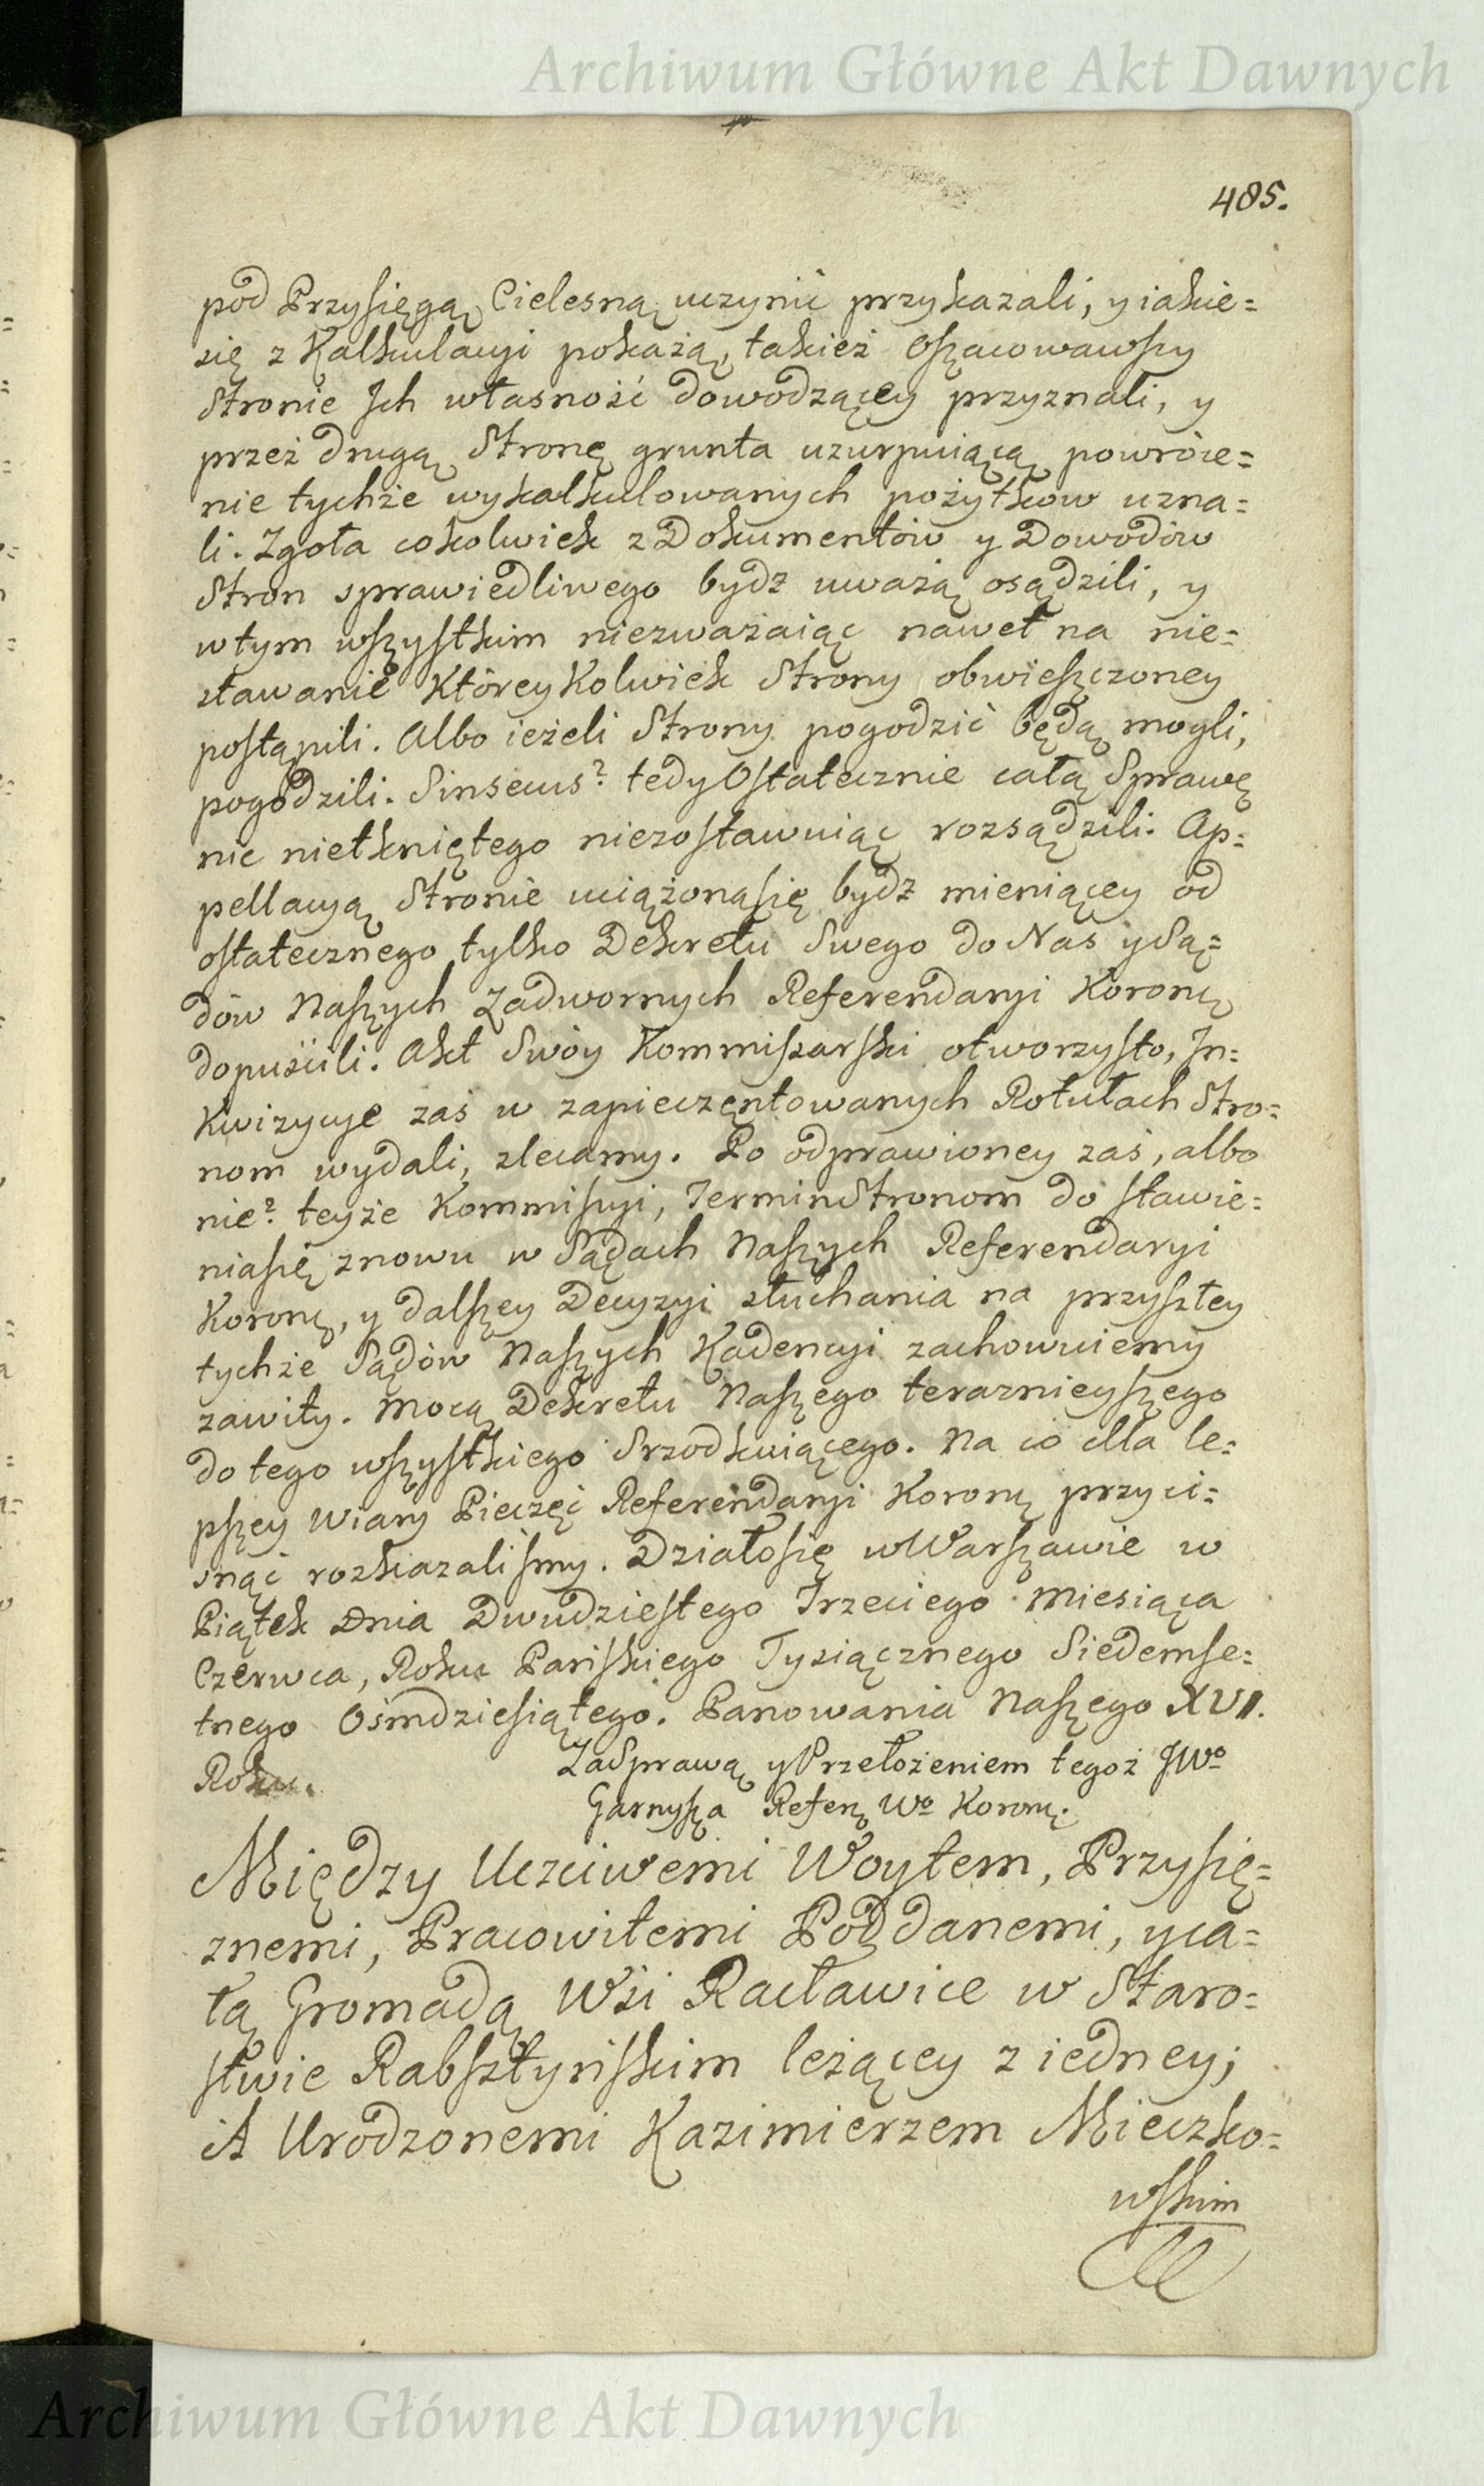 Archiwum Główne Akt Dawnych
485.
pod Przysięgą Cielesną uczynić przykazali, y iakie=
się z Kalkulacyi pokażą, takież Oszacowawszy
Stronie Ich własność dowodzącey przyznali, y
przez drugą Stronę grunta uzurpuiącą powróce=
nie tychże wykalkulowanych pożytkow uzna=
li. Zgoła cokolwiek z Dokumentów y Dowodów
Stron sprawiedliwego bydz uważą osądzili, y
wtym wszystkim niezważaiąc nawet na nie=
stawanie Którey Kolwiek Strony obwieszczoney
postąpili. Albo ieżeli Strony pogodzić będą mogli,
pogodzili. Sinsecus? tedy Ostatecznie całą Sprawę
nic nietkniętego niezostawuiąc rozsądzili. Ap=
pellacyą Stronie uciążonąsię bydz mieniącey od
ostatecznego tylko Dekretu Swego do Nas y Są=
dów Naszych Zadwornych Referendaryi Koronę
dopuścili. Akt Swóy Kommissarski otworzysto, In=
Kwizycye zaś w zapieczętowanych Rotułach Stro=
nom wydali, zlecamy. Po odprawioney zaś, albo
nie? teyże Kommissyi, Termin Stronom do stawie=
niasię znowu w Sądach Naszych Referendaryi
Koronę, y dalszey Decyzyi słuchania na przyszłey
tychże Sądów Naszych Kadencyi zachowuiemy
zawity. Mocą Dekretu Naszego teraznieyszego
do tego wszystkiego Srzodkuiącego. Na co dla le=
pszey Wiary Pieczęć Referendaryi Koronę przyci=
snąć rozkazalismy. Działosię w Warszawie w
Piątek Dnia Dwudziestego Trzeciego Miesiąca
Czerwca, Roku Pańskiego Tysiącznego Siedemse=
tnego Ośmdziesiątego. Panowania Naszego XVI.
Roku.
Za Sprawą y Przełożeniem tegoż JWo
Garnysza Referę Wo Koronę.
Między Uczciwemi Woytem, Przysię=
znemi, Pracowitemi Poddanemi, y ca=
łą Gromadą Wsi Racławice w Staro=
stwie Rabsztyńskim leżącey z iedney;
A Urodzonemi Kazimierzem Mieczko=
wskim
Archiwum Główne Akt Dawnych